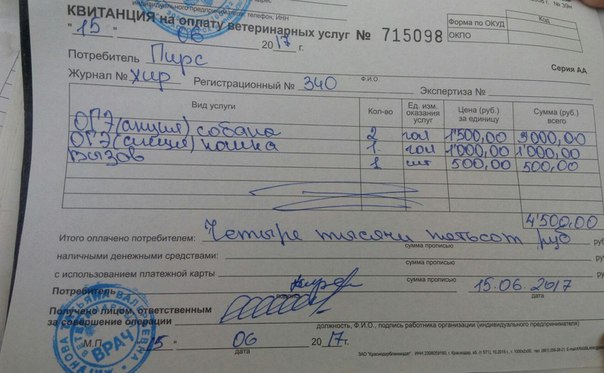 КВИТАНЦИЯ на оплату ветеринарных услуг № 715098
Форма по ОКУД
Код
ОКПО
"15" 06 2017
Серия АА
Потребитель Пирс
Ф.И.О.
Журнал № хир Регистрационный № 340 Экспертиза №
Вид услуги Кол-во Ед. изм. оказания услуг Цена (руб.) за единицу Сумма (руб.) всего
ОГЭ(акция) собака 2 гол 1'500,00 3'000,00
ОГЭ(акция) кошка 1 гол 1'000,00 1'000,00
Вызов 1 шт 500,00 500,00
4'500,00
Итого оплачено потребителем: Четыре тысячи пятьсот руб
сумма прописью
наличными денежными средствами:
сумма прописью
с использованием платежной карты
сумма прописью
Потребитель 15.06.2017
дата
Получено лицом, ответственным
за совершение операции
должность, Ф.И.О., подпись работника организации (индивидуального предпринимателя)
М.П. "15" 06 2017
дата
ВРАЧ